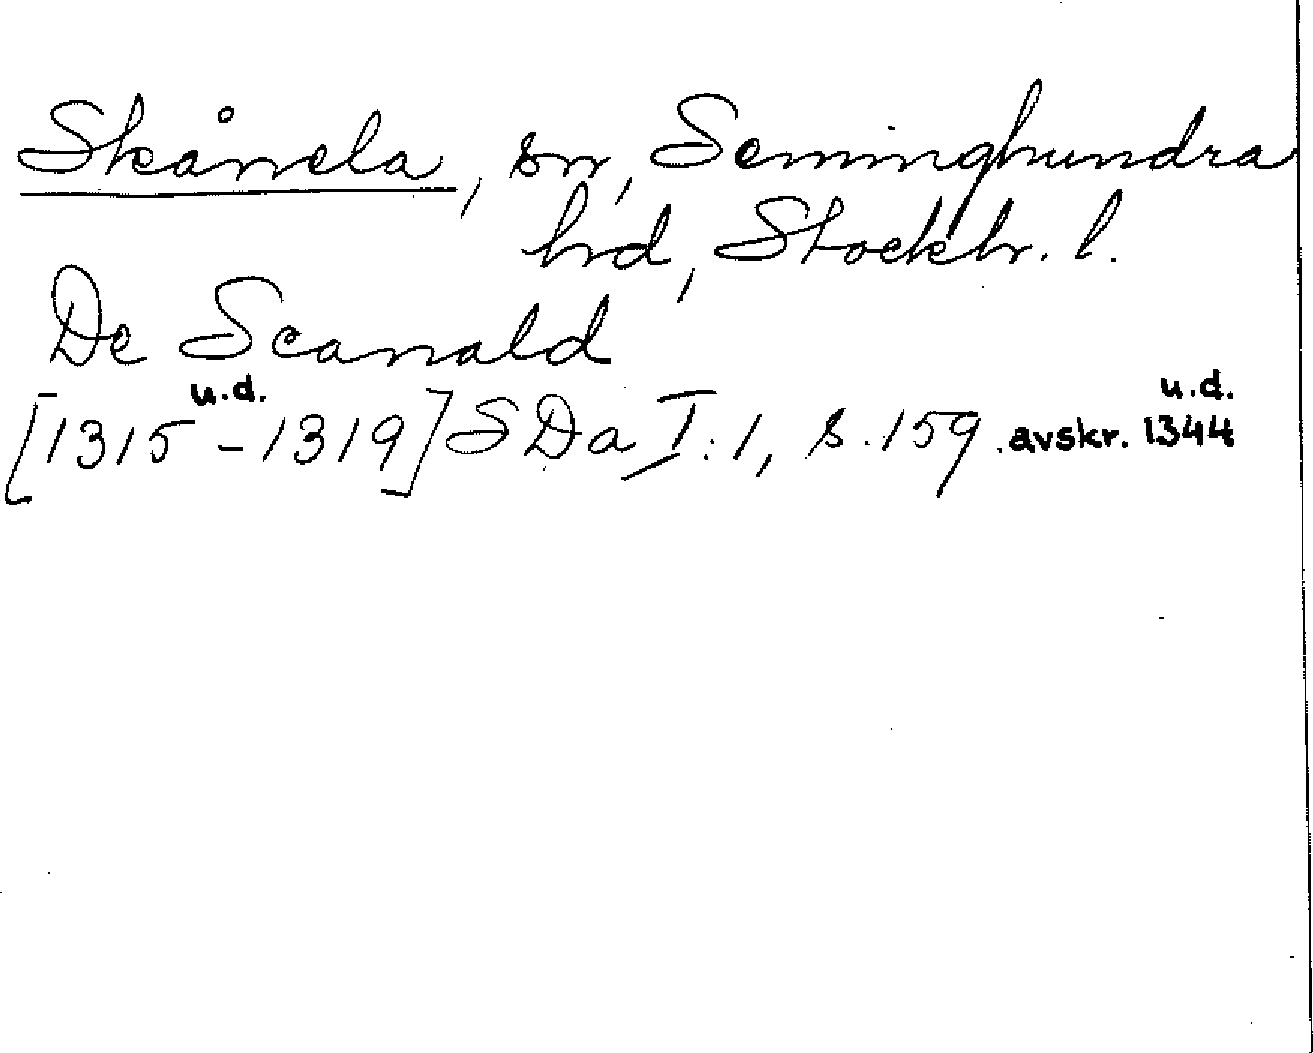 Skånela, sn, Seminghundra
hd, Stockh. l.
De Scanald
u.d. u.d.
[1315 - 1319] SDa I:1, s. 159. avskr. 1344